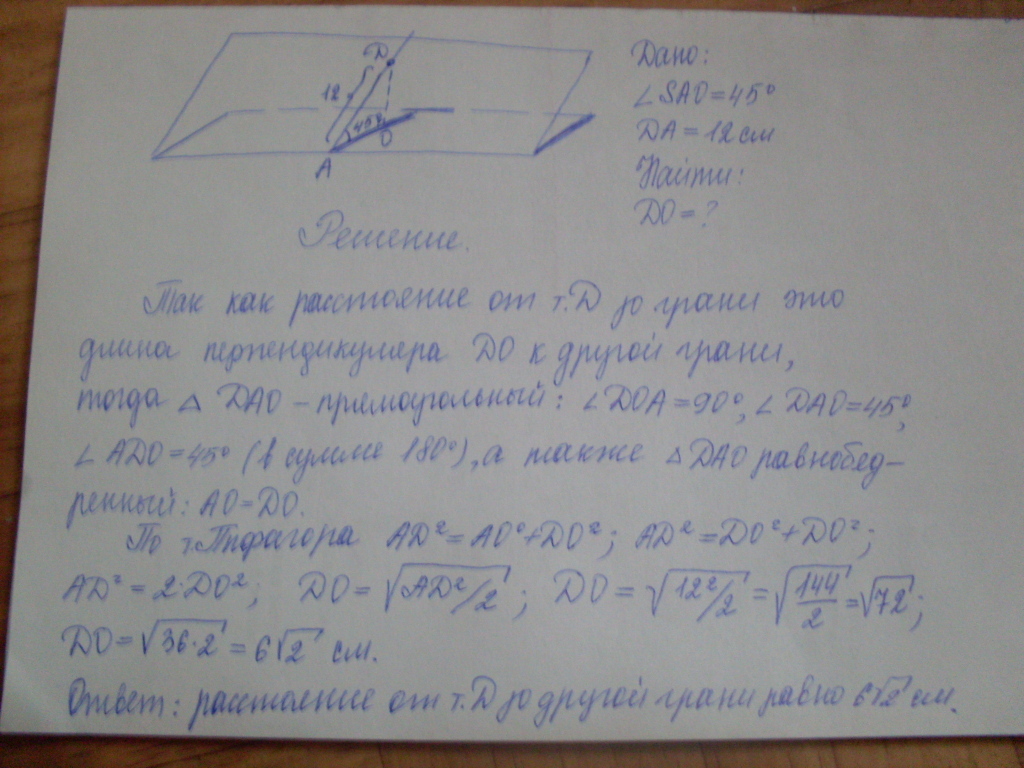 D
12
45°
O
A
Дано:
∠SAO=45°
DA=12см
Найти:
DO=?
Решение.
Так как расстояние от т.D до грани это
длина перпендикуляра DO к другой грани,
тогда △ DAO – прямоугольный: ∠DOA=90°, ∠DAO=45°,
∠ADO=45° (в сумме 180°), а также △DAO равнобед–
ренный: AO=DO.
По т.Пифагора AD²=AO²+DO²; AD²=DO²+DO²;
AD²=2·DO²; DO=√AD²/2; DO=√12²/2=√144/2=√72;
DO=√36·2=6√2 см.
Ответ: расстояние от т.D до другой грани равно 6√2 см.